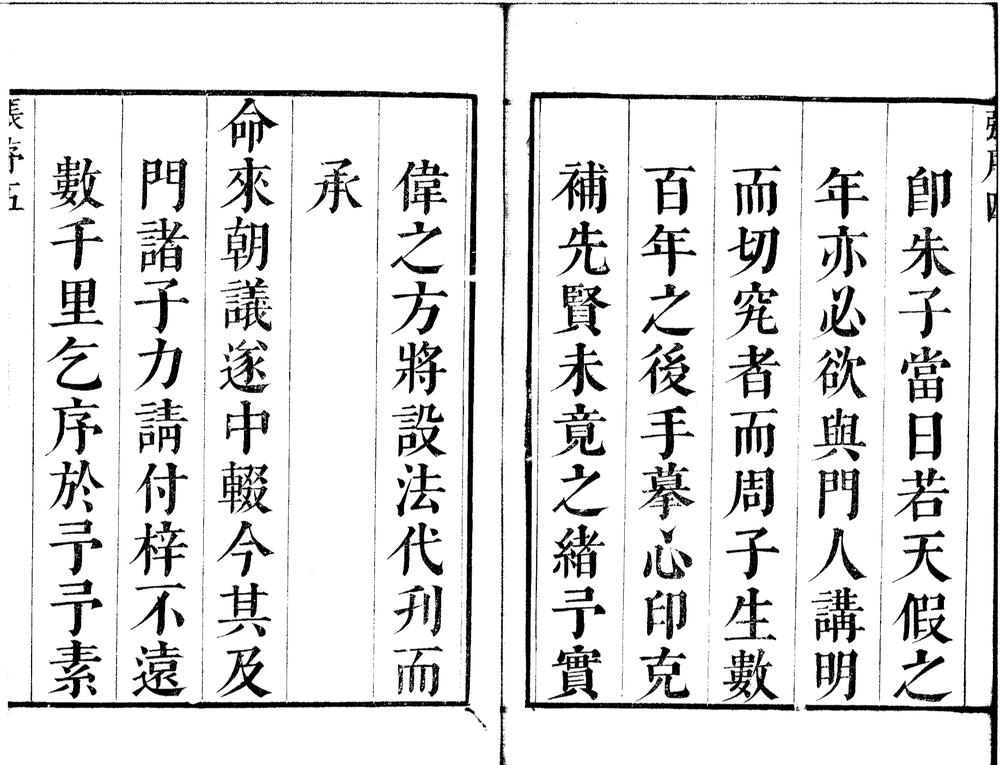 卽朱子當日若天假之
年亦必欲與門人講明
而切究者而周子生數
百年之後手摹心印克
補先賢未竟之緒予實
偉之方將設法代刋而
承
命來朝議遂中輟今其及
門諸子力請付梓不遠
數千里乞序於予予素
張序五